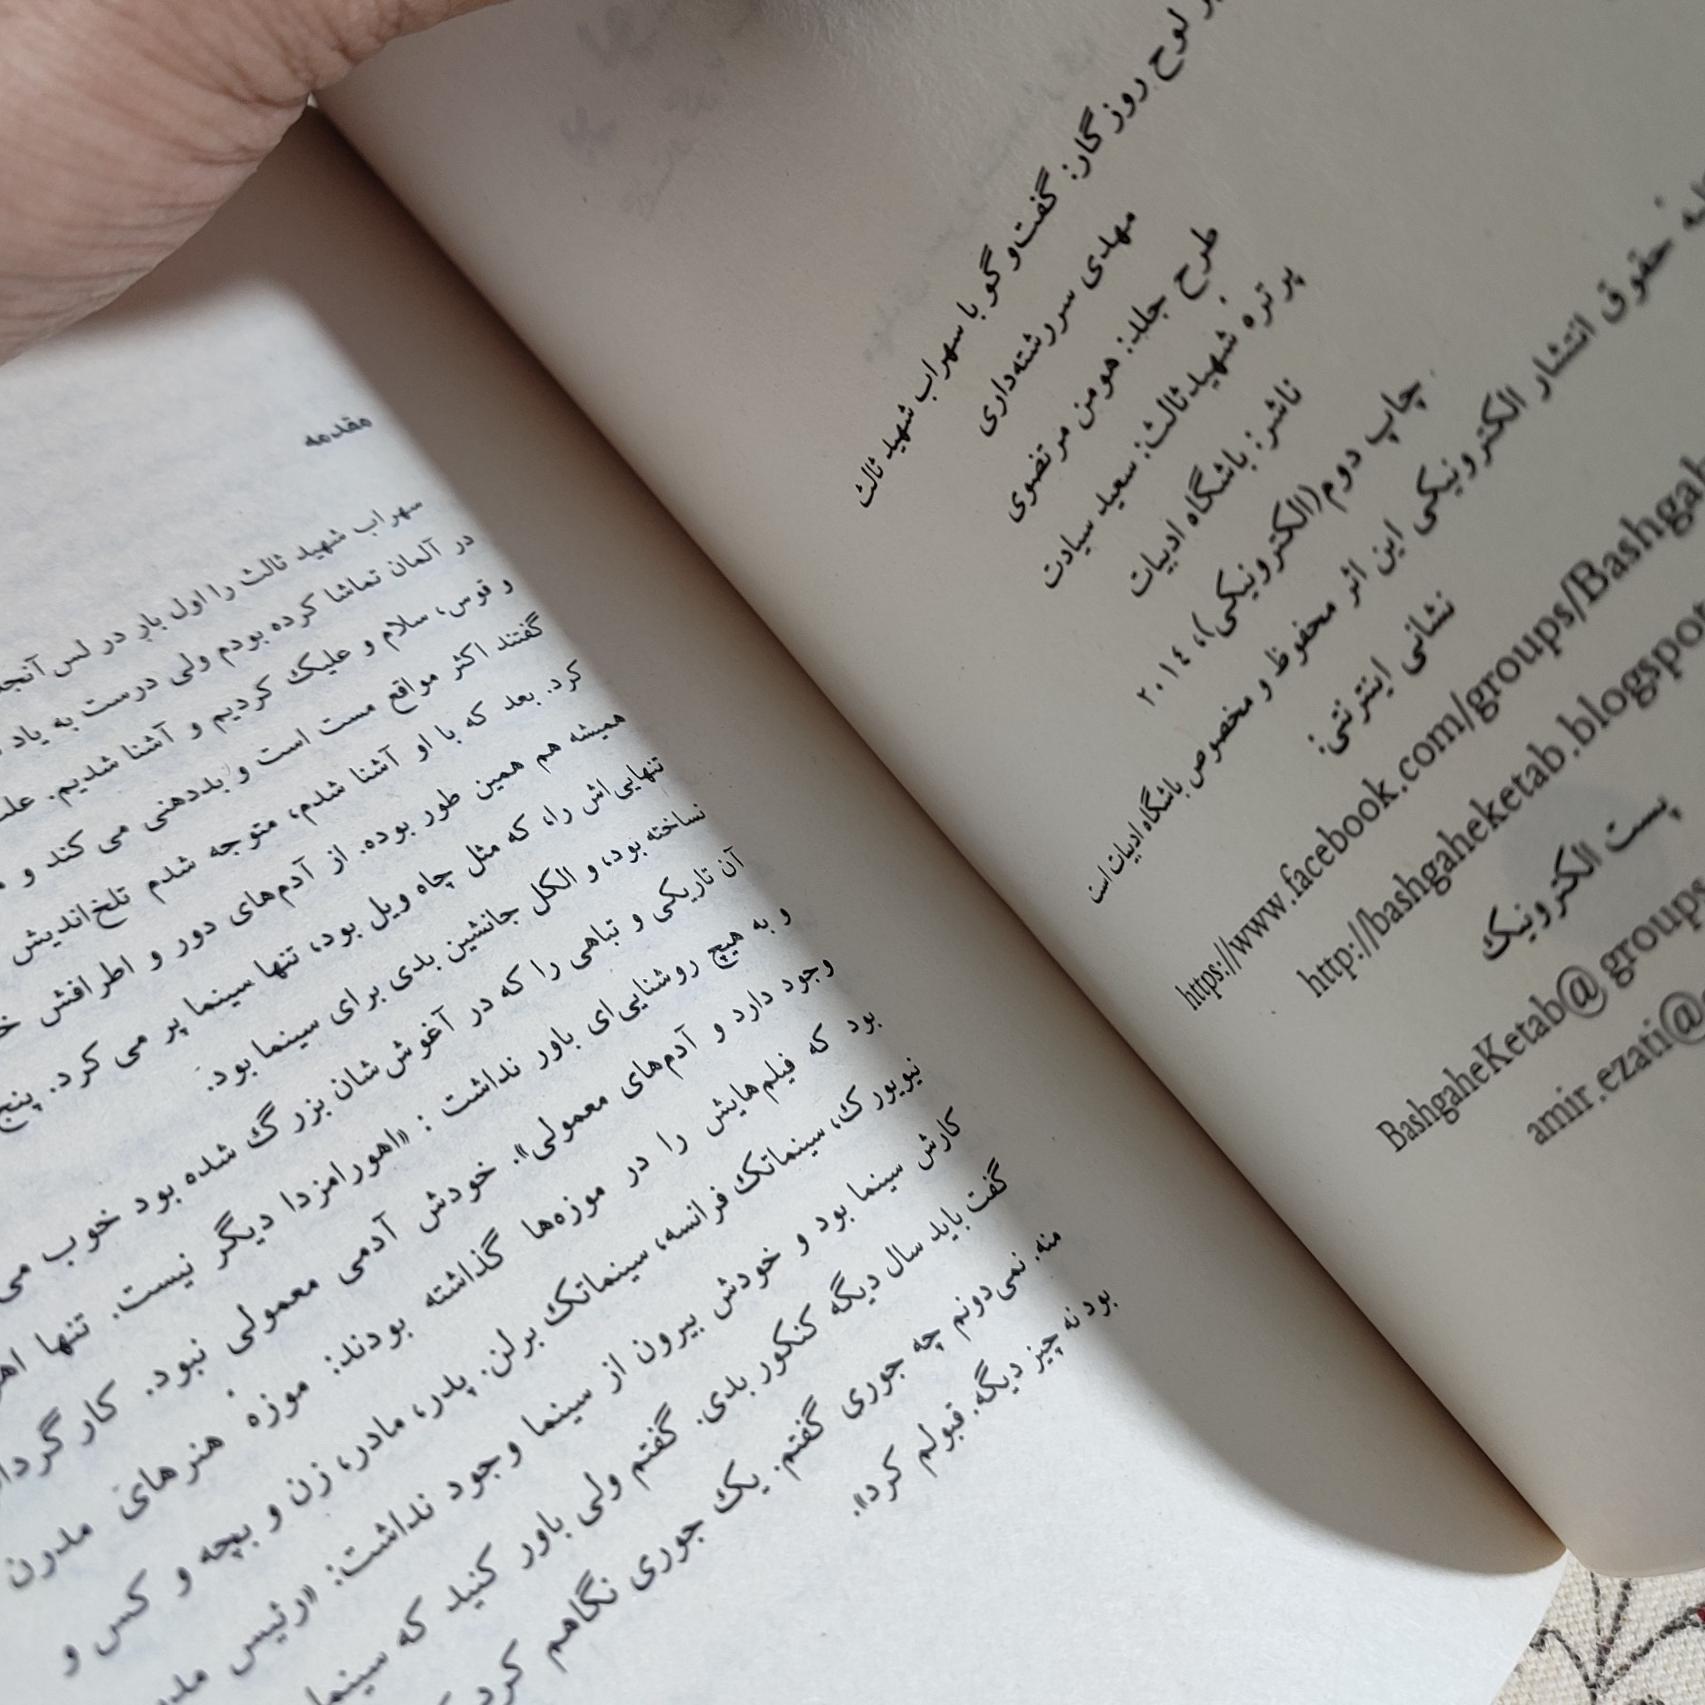 بر لوح روزگار: گفت‌و‌گو با سهراب شهید ثالث
مهدی سررشته‌داری
طرح جلد: هومن مرتضوی
پرترهٔ شهیدثالث: سعید سیادت
ناشر: باشگاه ادبیات
چاپ دوم(الکترونیکی)، ۲۰۱٤
حقوق انتشار الکترونیکی این اثر محفوظ و مخصوص باشگاه ادبیات است
نشانی اینترنتی:
https://www.facebook.com/groups/Bashgah
http://bashgaheketab.blogspot
پست الکترونیک
BashgaheKetab@groups
amir.ezati@
مقدمه
سهراب شهید ثالث را اول بار در لس آنجلس
در آلمان تماشا کرده بودم ولی درست به یاد
و قوس، سلام و علیک کردیم و آشنا شدیم.
گفتند اکثر مواقع مست است و بددهنی می کند و
کرد. بعد که با او آشنا شدم، متوجه شدم تلخ‌اندیش
همیشه هم همین طور بوده. از آدم‌های دور و اطرافش
تنهایی‌اش را، که مثل چاه ویل بود، تنها سینما پر می کرد. پنج
ساخته بود، و الکل جانشین بدی برای سینما بود.
آن تاریکی و تباهی را که در آغوش‌شان بزرگ شده بود خوب می
و به هیچ روشنایی‌ای باور نداشت : «اهورامزدا دیگر نیست. تنها
وجود دارد و آدم‌های معمولی». خودش آدمی معمولی نبود. کارگردانی
بود که فیلم‌هایش را در موزه‌ها گذاشته بودند: موزهٔ هنرهای مدرن
نیویورک، سینماتک فرانسه، سینماتک برلن. پدر، مادر، زن و بچه و کس و
کارش سینما بود و خودش بیرون از سینما وجود نداشت: «رئیس
گفت باید سال دیگه کنکور بدی. گفتم ولی باور کنید که سینما
منه. نمی‌دونم چه جوری گفتم. یک جوری نگاهم کرد
بود نه چیز دیگه. قبولم کرد».